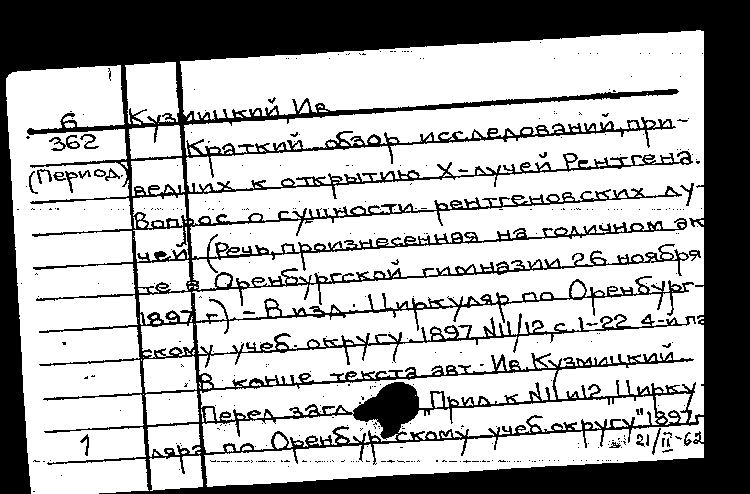 6
362
(Период.)
Кузмицкий, Ив.
Краткий обзор исследований, при-
ведших к открытию X-лучей Рентгена.
Вопрос о сущности рентгеновских лу-
чей. (Речь, произнесенная на годичном ак
те в Оренбургской гимназии 26 ноября
1897 г.) - В изд.: Циркуляр по Оренбург-
скому учеб. округу. 1897, N11/12, с. 1-22 4-й па
В конце текста авт.: Ив. Кузмицкий.
Перед загл. "Прил. к N11 и 12 "Цирку-
ляра по Оренбургскому учеб. округу" 1897 г
1
21/II-62